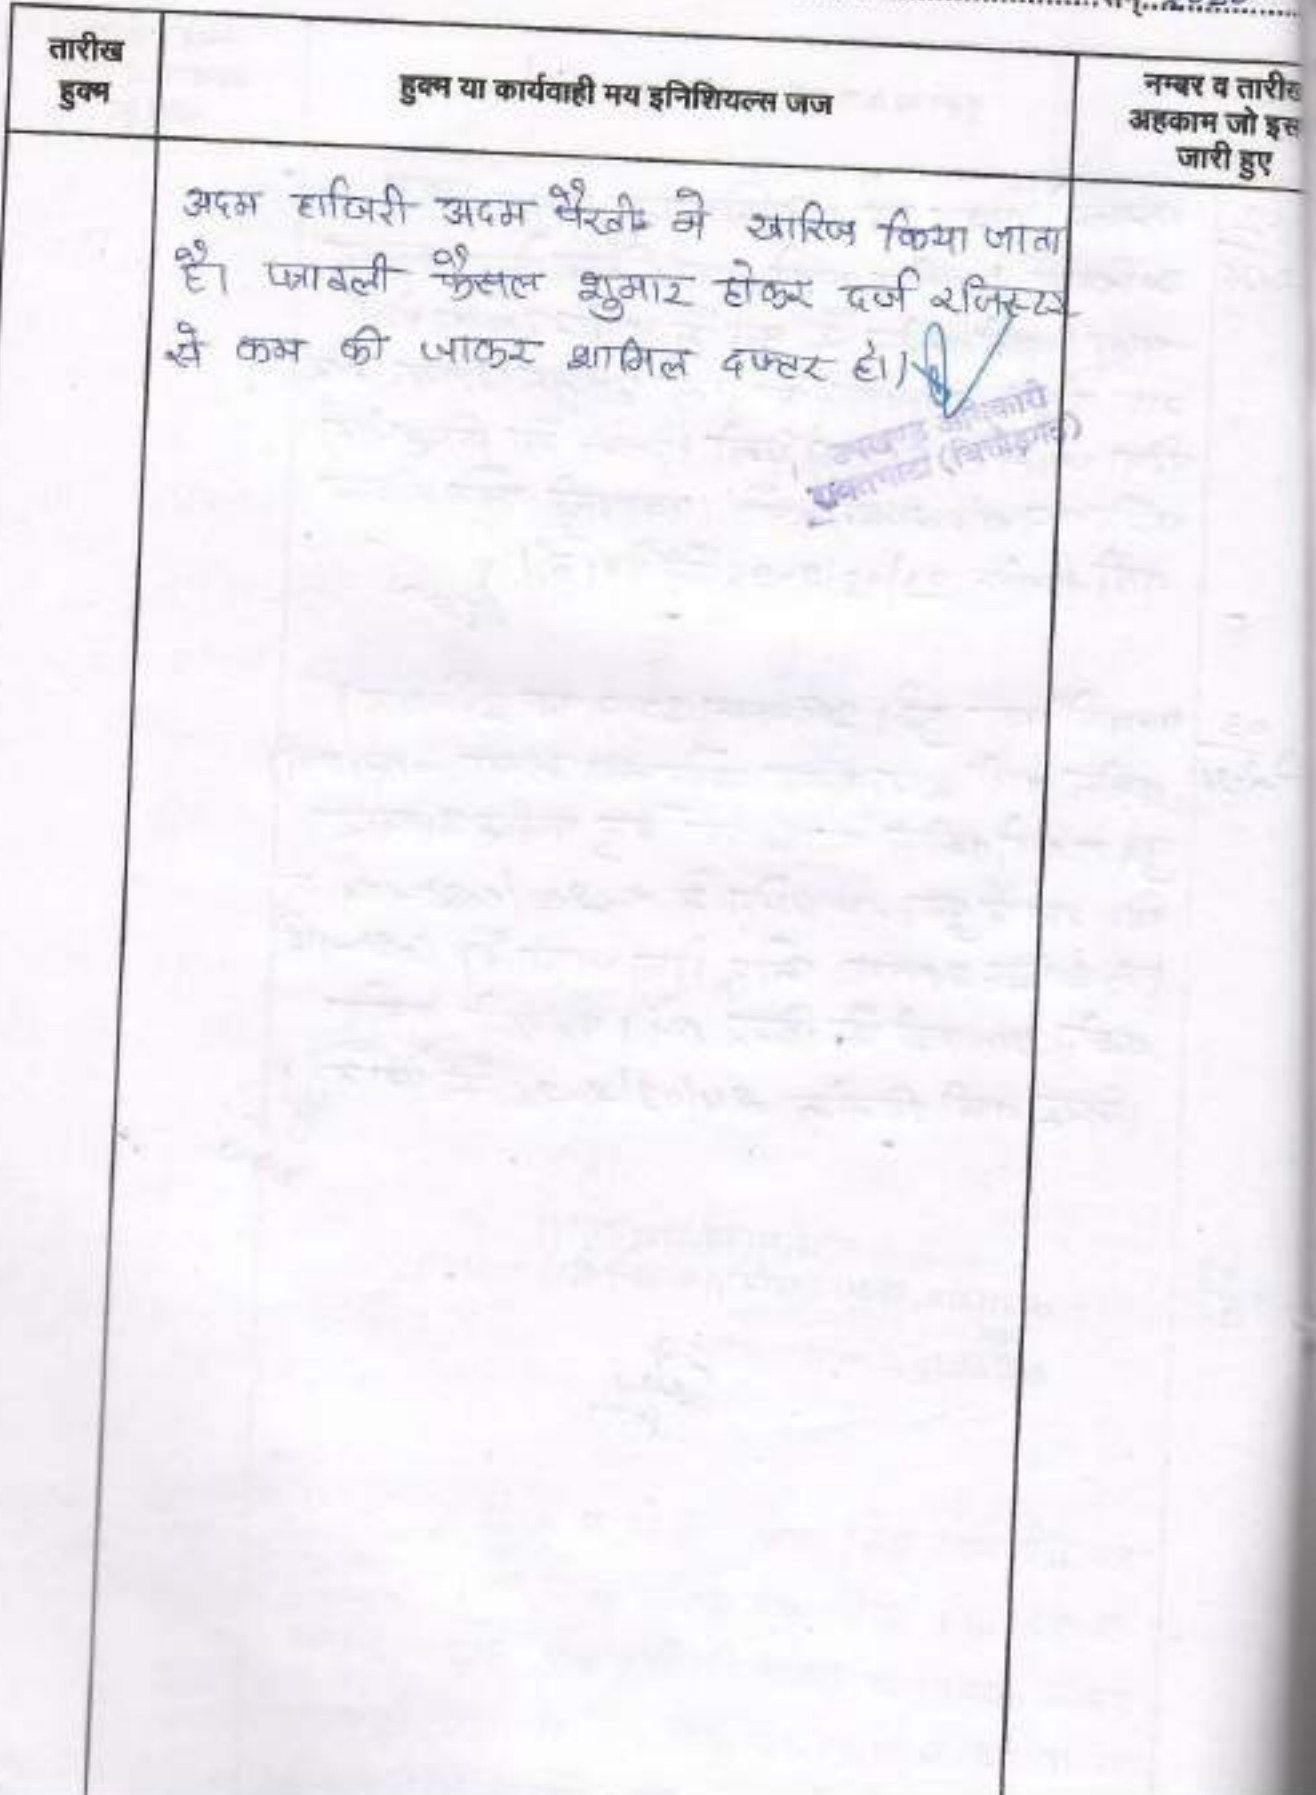 तारीख
हुक्म
हुक्म या कार्यवाही मय इनिशियल्स जज
नम्बर व तारीख
अहकाम जो इस
जारी हुए
अदम हाजिरी अदम पैरवी में खारिज किया जाता
है। पत्रावली फैसल शुमार होकर दर्ज रजिस्टर
से कम की जाकर शामिल दफ्तर हो।
उपखण्ड अधिकारी
(चित्तौड़गढ़)